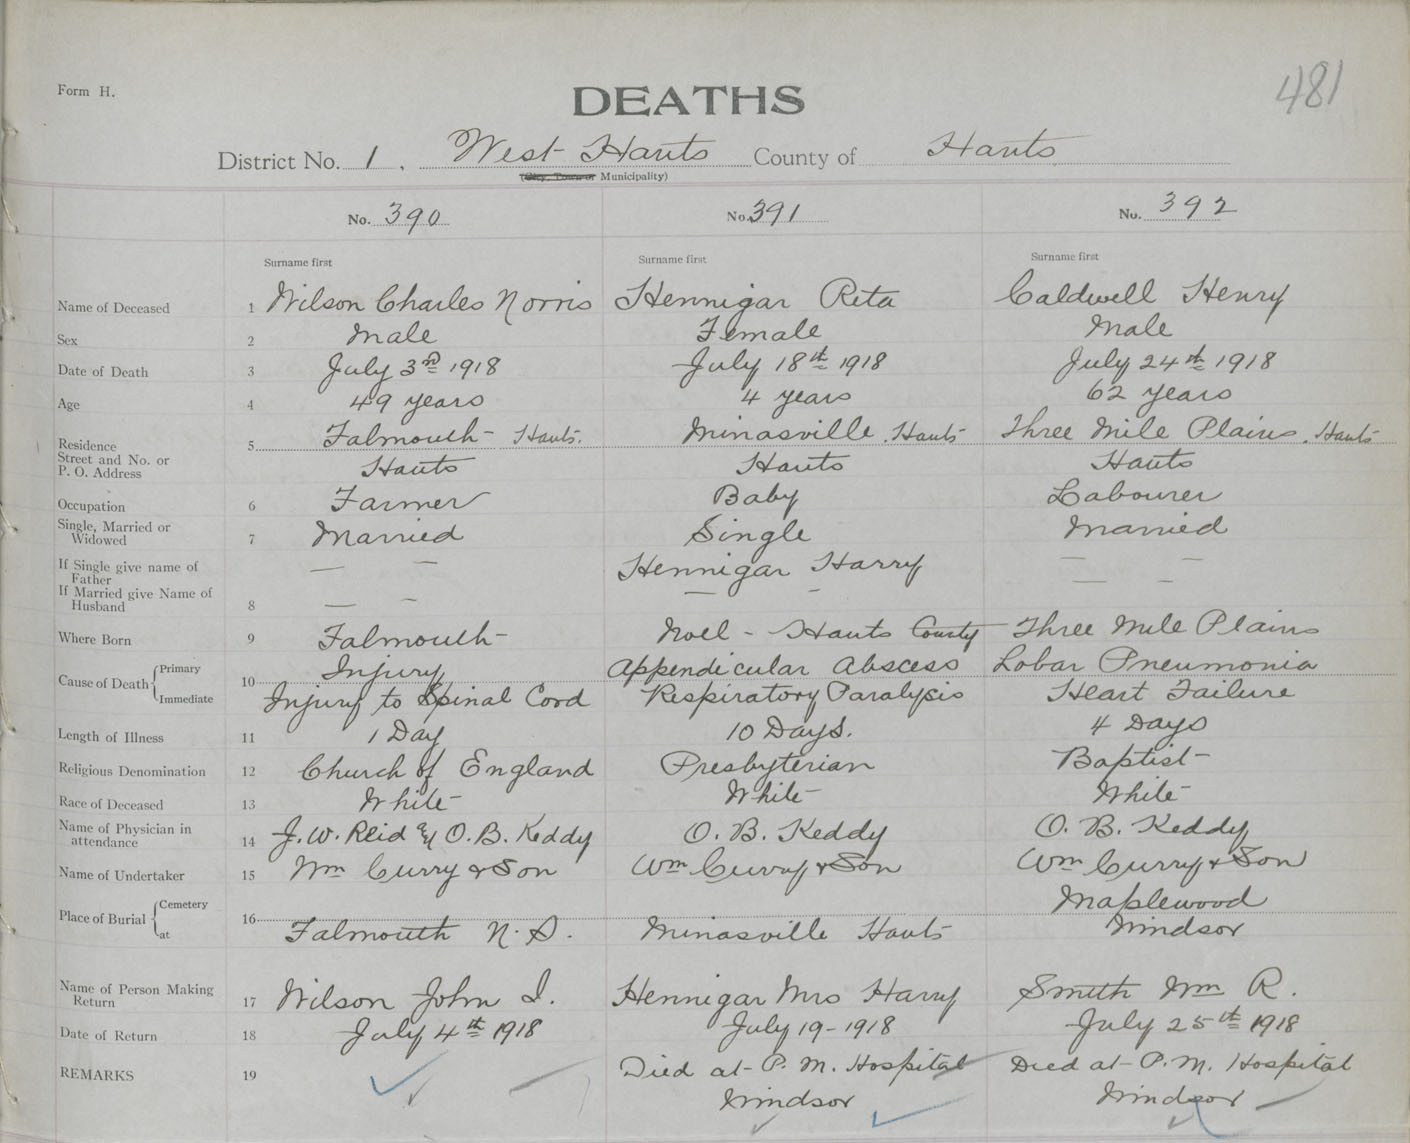 481
Form H.
DEATHS
District No. 1, West Hants County of Hants
(City, Town or Municipality)
No. 390 No. 391 No. 392
Surname first Surname first Surname first
Name of Deceased 1 Wilson Charles Norris Hennigar Rita Caldwell Henry
Sex 2 Male Female Male
Date of Death 3 July 3rd 1918 July 18th 1918 July 24th 1918
Age 4 49 years 4 years 62 years
Residence 5 Falmouth Hants. Minasville, Hants Three Mile Plains, Hants
Street and No. or
P. O. Address Hants Hants Hants
Occupation 6 Farmer Baby Labourer
Single, Married or
Widowed 7 Married Single Married
If Single give name of
Father — — Hennigar Harry — —
If Married give Name of
Husband 8 — — — — — —
Where Born 9 Falmouth Noel - Hants County Three Mile Plains
Cause of Death Primary 10 Injury Appendicular Abscess Lobar Pneumonia
Immediate Injury to Spinal Cord Respiratory Paralysis Heart Failure
Length of Illness 11 1 Day 10 Days. 4 Days
Religious Denomination 12 Church of England Presbyterian Baptist
Race of Deceased 13 White White White
Name of Physician in
attendance 14 J. W. Reid & O. B. Keddy O. B. Keddy O. B. Keddy
Name of Undertaker 15 Wm Curry & Son Wm Curry & Son Wm Curry & Son
Place of Burial Cemetery 16 Maplewood
at Falmouth N. S. Minasville Hants Windsor
Name of Person Making
Return 17 Wilson John I. Hennigar Mrs Harry Smith Wm R.
Date of Return 18 July 4th 1918 July 19-1918 July 25th 1918
REMARKS 19 Died at P. M. Hospital Died at P. M. Hospital
Windsor Windsor